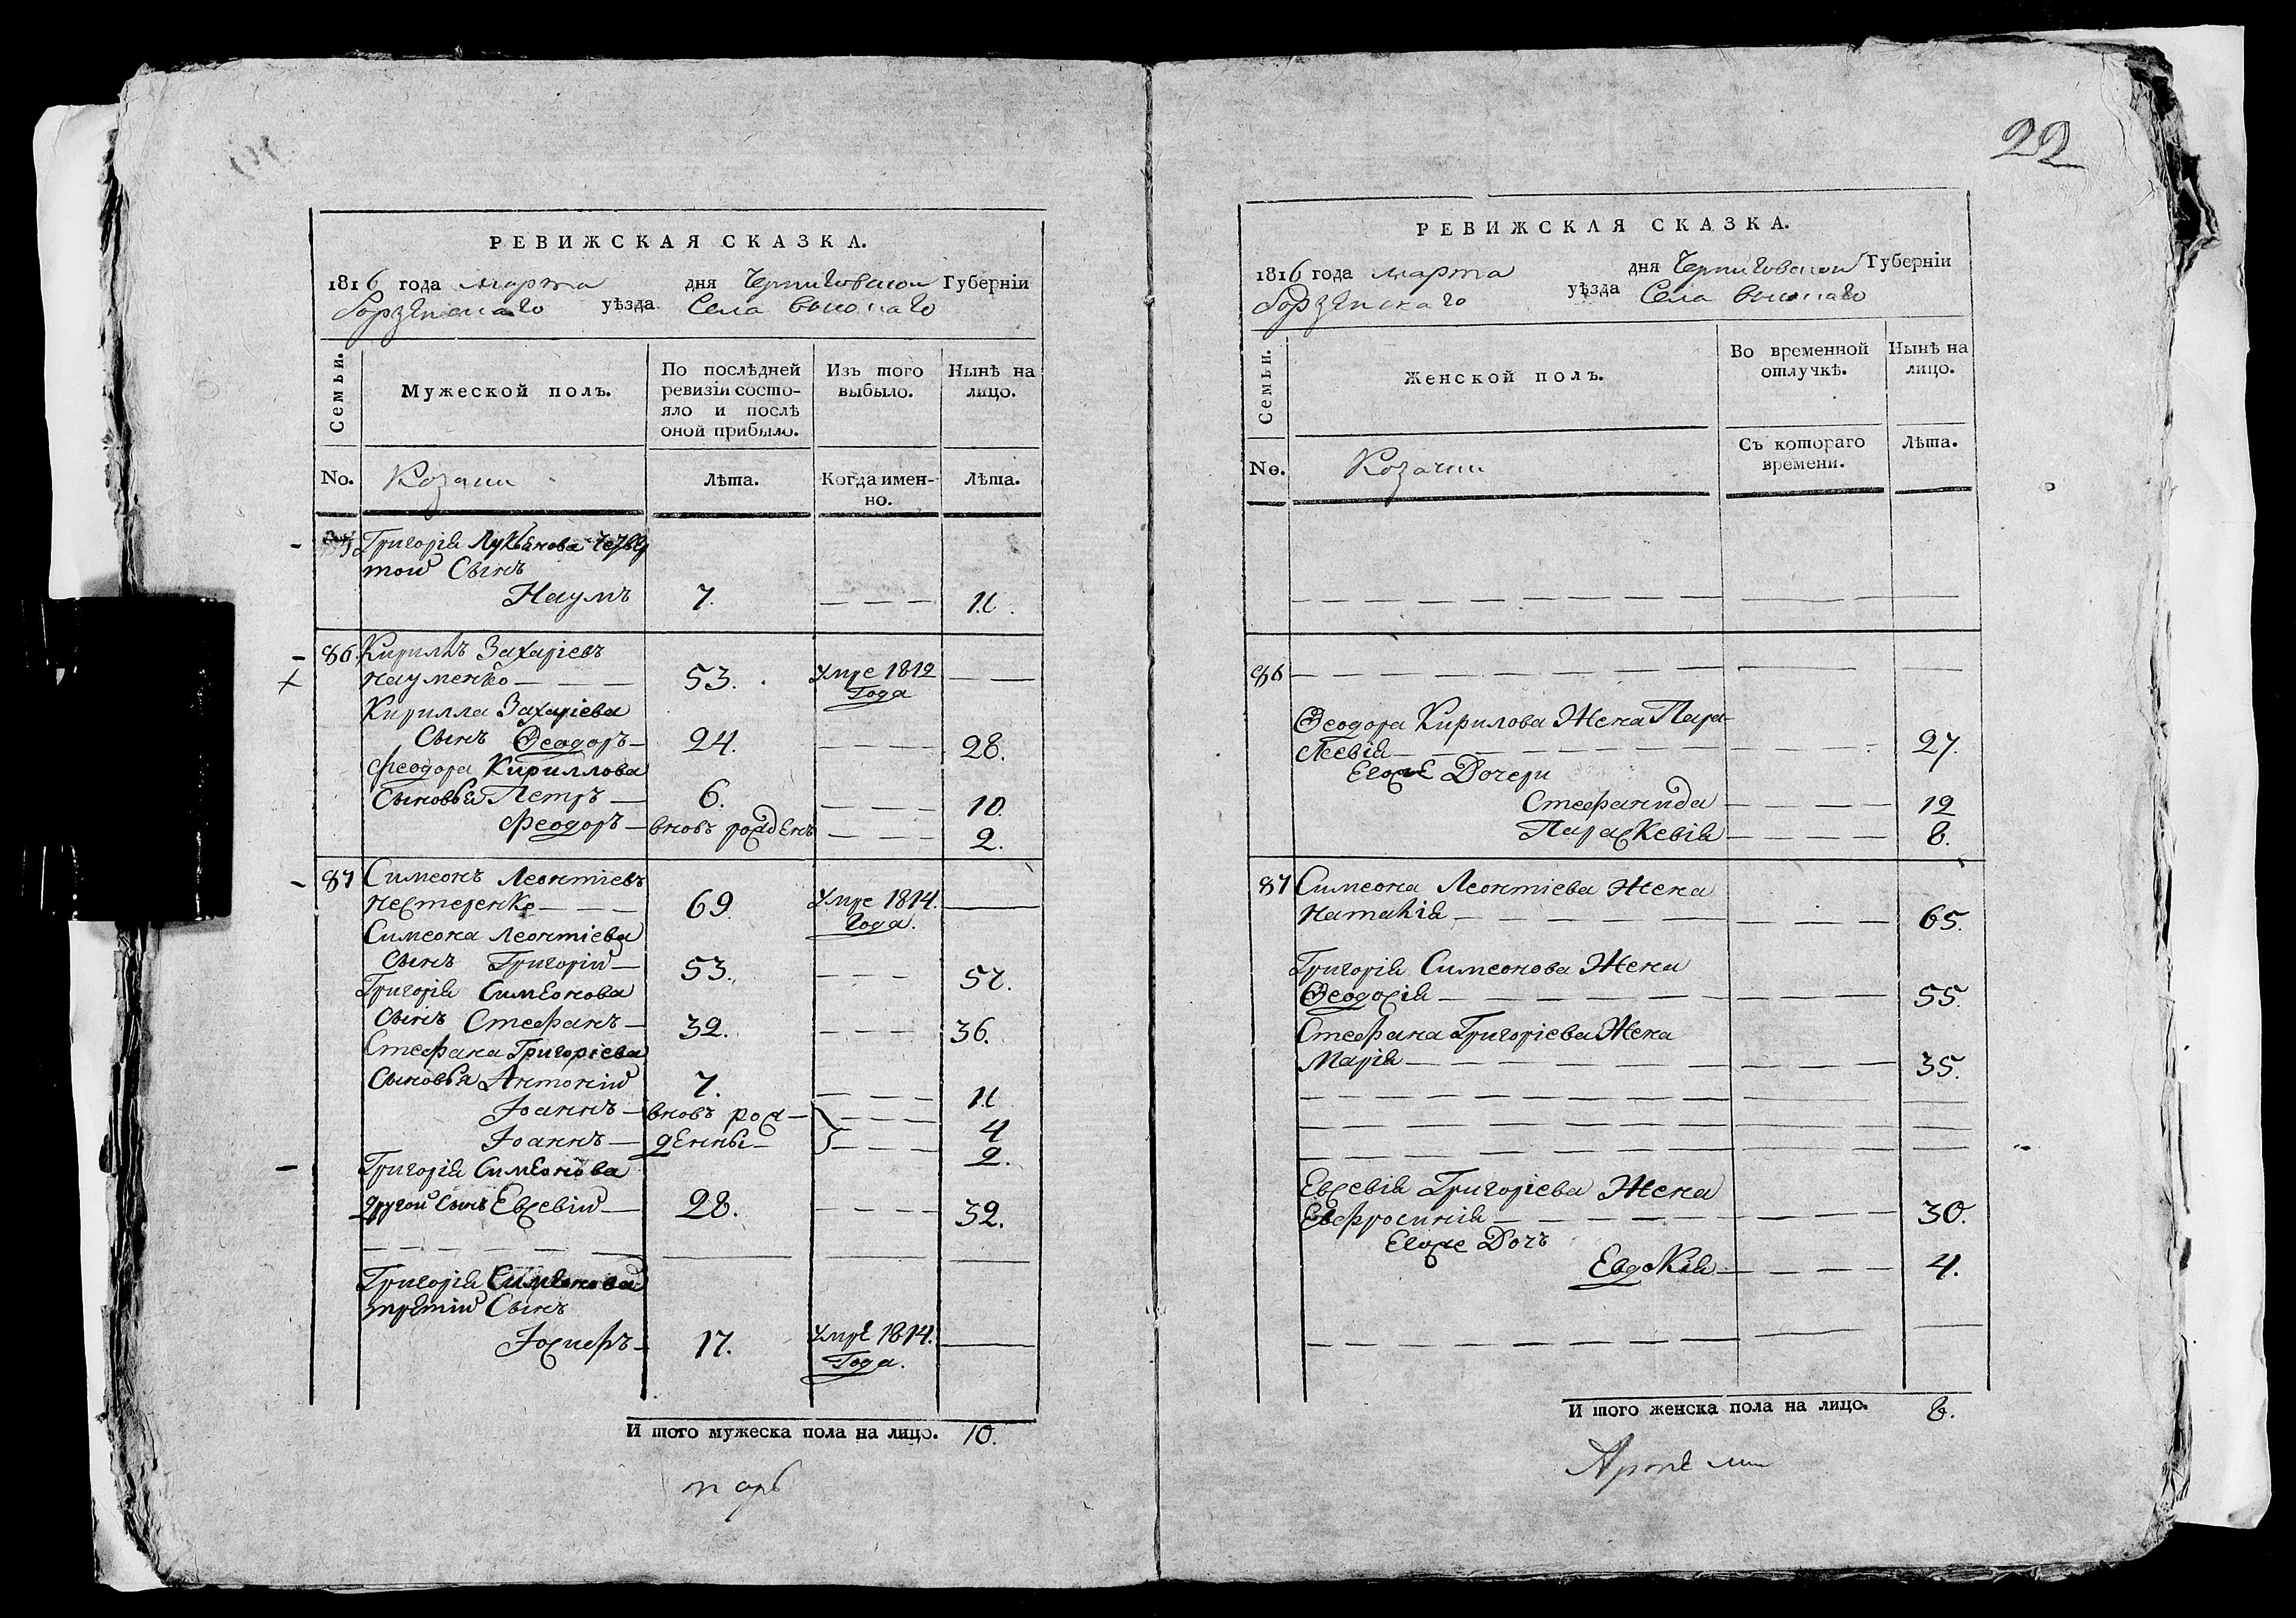 22
РЕВИЖСКАЯ СКАЗКА.
1816 года марта дня Черниговской Губернїи
Борзенскаго уѣзда Села
Семьи.
Мужеской полъ.
По послѣдней ревизїи состояло и послѣ оной прибыло.
Изъ того выбыло.
Нынѣ на лицо.
No.
Козаки
Лѣта.
Когда именно.
Лѣта.
Григорїя Лукьянова четвер
той Сынъ
Наумъ 7. 11.
86. Кирилъ Захарїевъ
Науменко 53. умре 1812
Года
Кирилла Захарїева
Сынъ Ѳеодоръ 24. 28.
Феодора Кириллова
Сыновья Петръ 6. 10.
Феодоръ вновь рожденъ 2.
87 Симеонъ Леонтїевъ
Нестеренко 69. умре 1814.
Года.
Симеона Леонтїева
Сынъ Григорїй 53. 57.
Григорїя Симеонова
Сынъ Стефанъ 32. 36.
Стефана Григорїева
Сыновья Антонїй 7. 11
Іоаннъ вновь рож- 4
Іоаннъ денны 2.
Григорїя Симеонова
другой Сынъ Евсевїй 28. 32.
Григорїя Симеонова
третїй Сынъ
Іосифъ 17. умре 1814.
Года.
И того мужеска пола на лицо. 10.
РЕВИЖСКАЯ СКАЗКА.
1816 года марта дня Черниговской Губернїи
Борзенскаго уѣзда Села
Семьи.
Женской полъ.
Во временной отлучкѣ.
Нынѣ на лицо.
No.
Козачки
Съ котораго времени.
Лѣта.
86
Ѳеодора Кирилова Жена Пара-
скевїя 27.
Егоже Дочери
Стефанида 12
Параскевїя 8.
87 Симеона Леонтїева Жена
Наталїя 65.
Григорїя Симеонова Жена
Ѳеодосїя 55.
Стефана Григорїева Жена
Марїя 35.
Евсевїя Григорїева Жена
Евфросинїя 30.
Егоже Дочь
Евдокїя 4.
И того женска пола на лицо. 8.